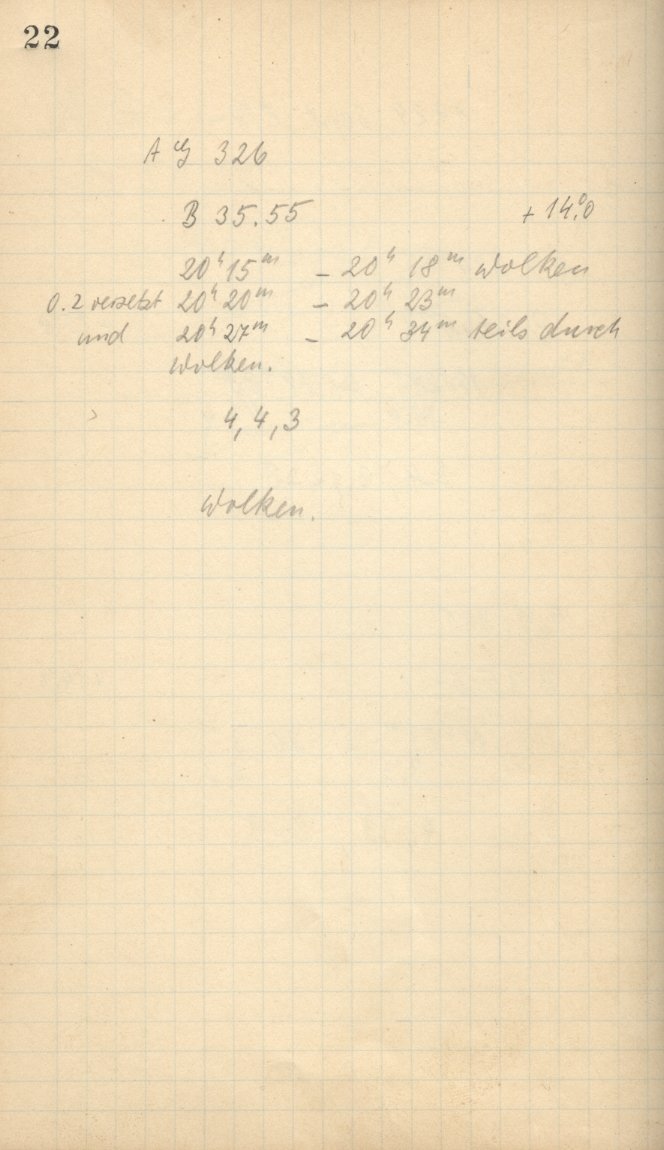 22
A G 326
B 35.55 + 14°.0
20ʰ 15ᵐ – 20ʰ 18ᵐ Wolken
0.2 versetzt 20ʰ 20ᵐ – 20ʰ 23ᵐ
und 20ʰ 27ᵐ – 20ʰ 34ᵐ teils durch
Wolken.
4, 4, 3
Wolken.